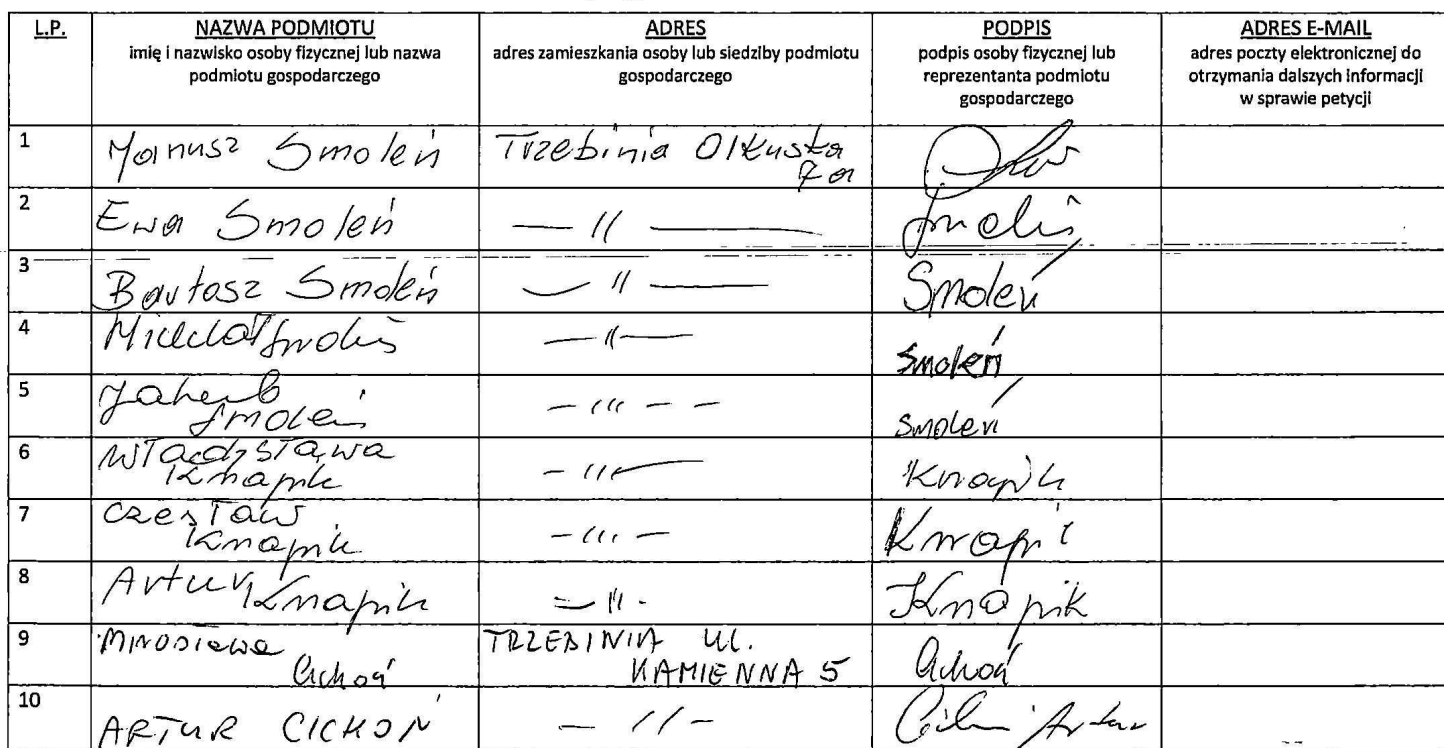 L.P. NAZWA PODMIOTU ADRES PODPIS ADRES E-MAIL
imię i nazwisko osoby fizycznej lub nazwa podmiotu gospodarczego
adres zamieszkania osoby lub siedziby podmiotu gospodarczego
podpis osoby fizycznej lub reprezentanta podmiotu gospodarczego
adres poczty elektronicznej do otrzymania dalszych informacji w sprawie petycji
1 Janusz Smoleń Trzebinia Olkuska 7a
2 Ewa Smoleń — // —
3 Bartosz Smoleń — // — Smoleń
4 Michał Smoleń — // — Smoleń
5 Jakub Smoleń — /// — — Smoleń
6 Władysława Knapik — /// — Knapik
7 Czesław Knapik — /// — Knapik
8 Artur Knapik — // - Knapik
9 Mirosława Cichoń TRZEBINIA UL. KAMIENNA 5 Cichoń
10 ARTUR CICHOŃ — // — Artur